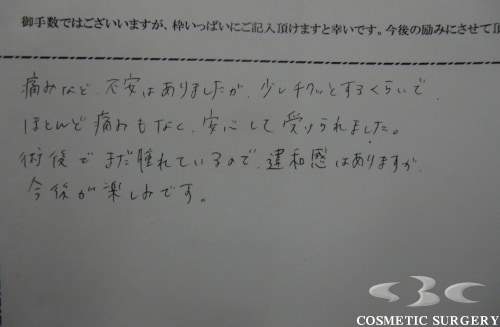 御手数ではございいますが、枠いっぱいにご記入頂けますと幸いです。今後の励みにさせて頂
痛みなど、不安はありましたが、少しチクッとするくらいで、
ほとんど痛みもなく、安心して受けられました。
術後でまだ腫れているので、違和感はありますが、
今後が楽しみです。
SBC
COSMETIC SURGERY